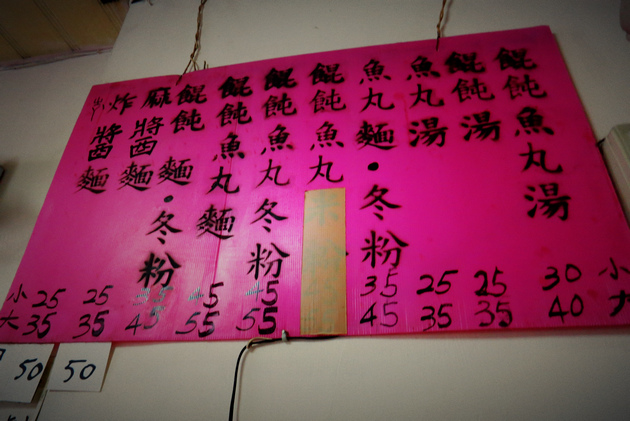 餛飩魚丸湯
餛飩湯
魚丸湯
魚丸麵•冬粉
餛飩魚丸
餛飩魚丸冬粉
餛飩魚丸麵
餛飩麵•冬粉
麻醬麵
炸醬麵
小 25 25 35 45 45 35 25 25 30 小
大 35 35 45 55 55 45 35 35 40 大
50 50